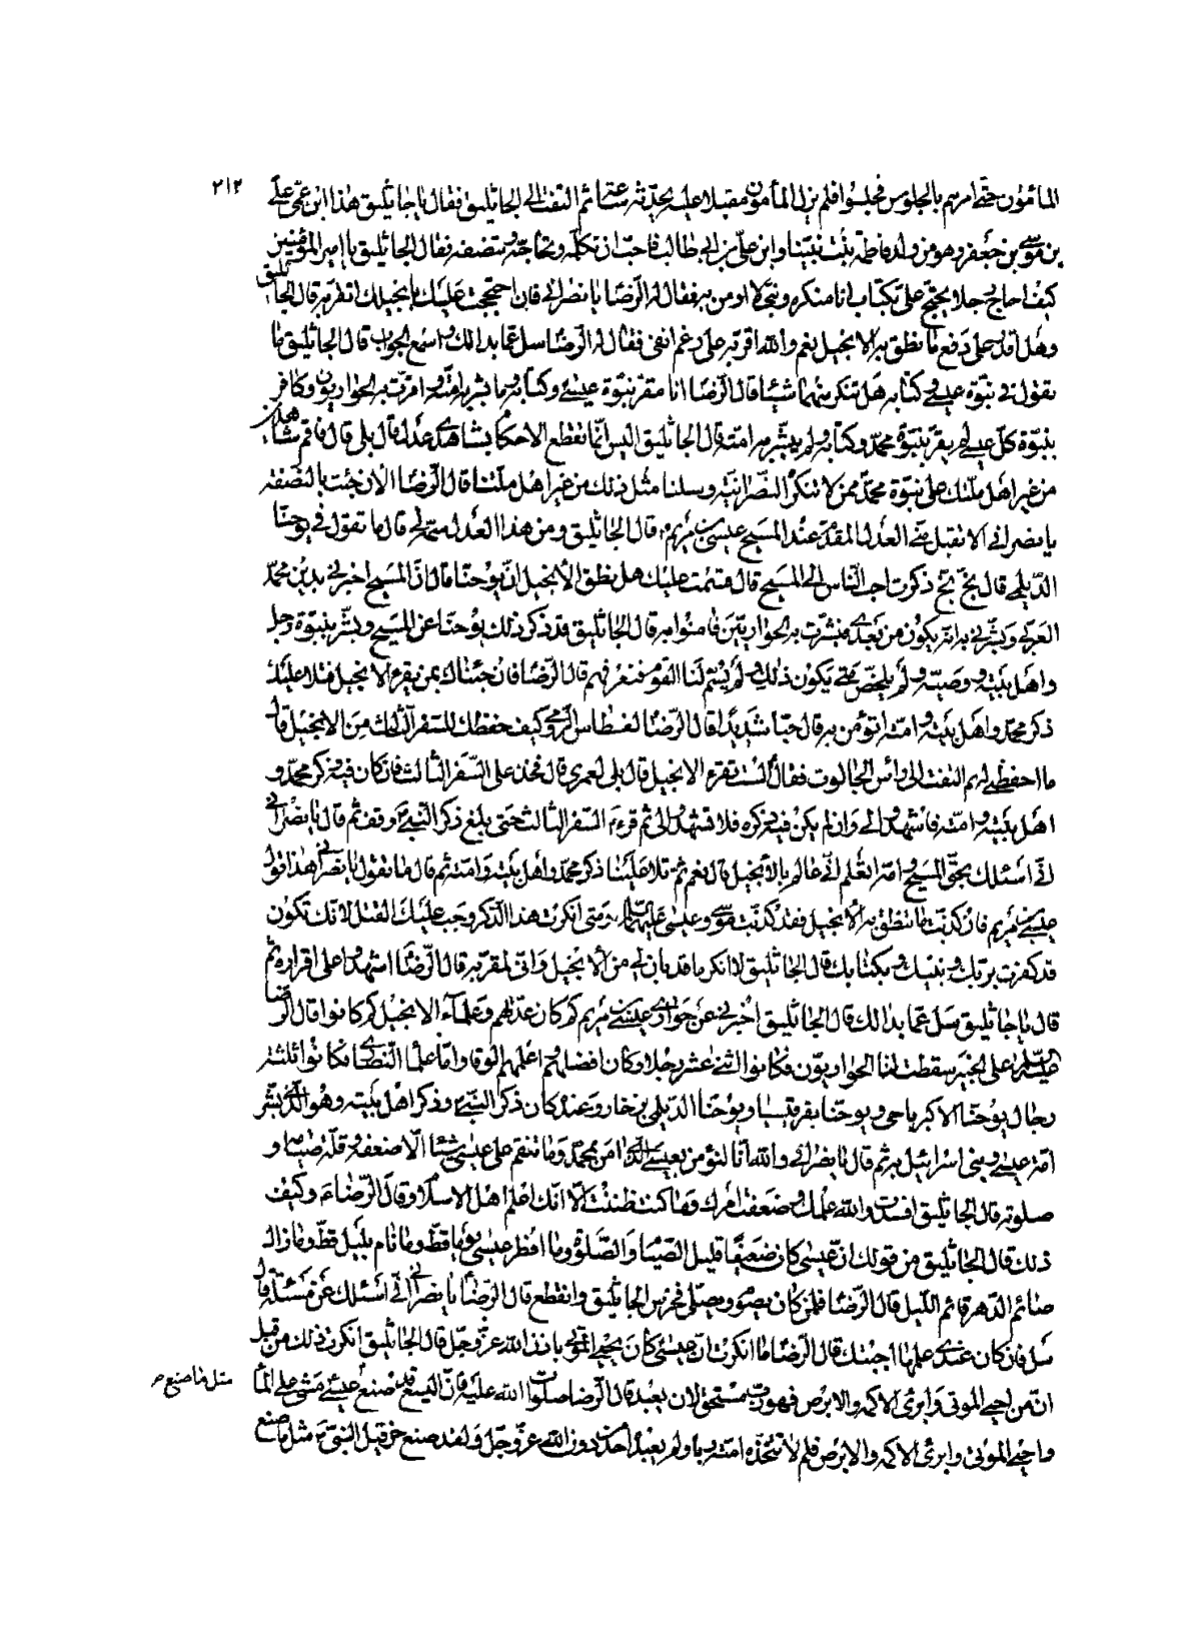 ٢١٢
المأمون حتى امرهم بالجلوس فجلسوا فلم يزل المأمون مقبلا عليه يحدّثه ساعة ثم التفت الى الجاثليق فقال يا جاثليق هذا ابن عمّى علىّ
بن موسى بن جعفر وهو من ولد فاطمة بنت نبيّنا وابن علىّ بن ابى طالب فاحبّ ان تكلّمه وتحاجّه وتنصفه فقال الجاثليق يا امير المؤمنين
كيف احاجّ رجلا يحتجّ علىّ بكتاب انا منكره ونبىّ لا اومن به فقال له الرّضا يا نصرانى فان احتججت عليك بانجيلك اتقرّ به قال الجاثليق
وهل اقدر على دفع ما نطق به الانجيل نعم والله اقرّ به على رغم انفى فقال له الرّضا سل عمّا بدا لك واسمع الجواب قال الجاثليق ما
تقول فى نبوّة عيسى وكتابه هل تنكر منهما شيئا قال الرّضا انا مقرّ بنبوّة عيسى وكتابه وما بشّر به امّته واقرّت به الحواريون وكافر
بنبوّة كلّ عيسى لم يقرّ بنبوّة محمّد وكتابه ولم يبشّر به امّته قال الجاثليق اليس انّما تقطع الاحكام بشاهدى عدل قال بلى قال فاقم شاهدين
من غير اهل ملّتك على نبوّة محمّد ممن لا تنكره النّصرانيّة وسلنا مثل ذلك من غير اهل ملّتنا قال الرّضا الان جئت بالنّصفة
يا نصرانى الا تقبل منّى العدل المقدّم عند المسيح عيسى بن مريم قال الجاثليق ومن هذا العدل سمّه لى قال ما تقول فى يوحنّا
الدّيلمى قال بخّ بخّ ذكرت احبّ النّاس الى المسيح قال فاقسمت عليك هل نطق الانجيل انّ يوحنّا قال انّ المسيح اخبرنى بدين محمّد
العربى وبشّرنى به انّه يكون من بعده فبشّرت به الحواريّين فامنوا به قال الجاثليق قد ذكر ذلك يوحنّا عن المسيح وبشّر بنبوّة رجل
واهل بيته ووصيّه ولم يلخّص متى يكون ذلك ولم يسمّ لنا القوم فنعرفهم قال الرّضا فان جئناك بمن يقرء الانجيل فتلا عليك
ذكر محمّد واهل بيته وامّته اتؤمن به قال شديدا قال الرّضا لنسطاس الرّومى كيف حفظك للسّفر الثّالث من الانجيل قال
ما احفظنى له ثم التفت الى رأس الجالوت فقال الست تقرء الانجيل قال بلى لعمرى قال فخذ على السّفر الثالث فان كان فيه ذكر محمّد و
اهل بيته وامّته فاشهدوا لى وان لم يكن فيه ذكره فلا تشهدوا لى ثم قرء السّفر الثالث حتى بلغ ذكر النبى وقف ثم قال يا نصرانى
انّى اسئلك بحقّ المسيح وامّه اتعلم انّى عالم بالانجيل قال نعم ثم تلا علينا ذكر محمّد واهل بيته وامّته ثم قال ما تقول يا نصرانى هذا قول
عيسى بن مريم فان كذّبت ما ينطق به الانجيل فقد كذّبت موسى وعيسى عليهما السلام ومتى انكرت هذا الذّكر وجب عليك القتل لانّك تكون
قد كفرت بربّك ونبيّك وبكتابك قال الجاثليق لا انكر ما قد بان لى من الانجيل وانّى لمقرّ به قال الرّضا اشهدوا على اقراره ثم
قال يا جاثليق سل عمّا بدا لك قال الجاثليق اخبرنى عن حوارى عيسى بن مريم كم كان عدّتهم وعن علمآء الانجيل كم كانوا قال الرّضا
عليه السلام على الخبير سقطت امّا الحواريّون فكانوا اثنى عشر رجلا وكان افضلهم واعلمهم الوقا وامّا علماء النّصارى فكانوا ثلثة
رجال يوحنّا الاكبر باحى ويوحنّا بقرقيسيا ويوحنّا الدّيلمى بزخار وعنده كان ذكر النبىّ وذكر اهل بيته وهو الّذى بشّر
امّة عيسى وبنى اسرائيل به ثم قال يا نصرانى والله انّا لنؤمن بعيسى الّذى امن بمحمّد وما ننقم على عيسى شيئا الّا ضعفه وقلّة صيامه و
صلوته قال الجاثليق افسدت والله علمك وضعّفت امرك وما كنت ظننت الّا انّك اعلم اهل الاسلام قال الرّضا وكيف
ذلك قال الجاثليق من قولك انّ عيسى كان ضعيفا قليل الصّيام والصّلوة وما افطر عيسى يوما قطّ وما نام بليل قطّ وما زال
صائم الدّهر قائم اللّيل قال الرّضا فلمن كان يصوم ويصلّى فخرس الجاثليق وانقطع قال الرّضا يا نصرانى انّى اسئلك عن مسئلة قال
سل فان كان عندى علمها اجبتك قال الرّضا ما انكرت انّ عيسى كان يحيى الموتى باذن الله عزّ وجلّ قال الجاثليق انكرت ذلك من قبل
انّ من احيى الموتى وابرئ الاكمه والابرص فهو ربّ مستحقّ لان يعبد قال الرّضا صلوات الله عليه فانّ اليسع قد صنع عيسى مشى على المآء
مثل ما صنع
واحيى الموتى وابرئ الاكمه والابرص فلم لا تتّخذه امّته ربّا ولم يعبده احد من دون الله عزّ وجلّ ولقد صنع حزقيل النبىّ مثل ما صنع